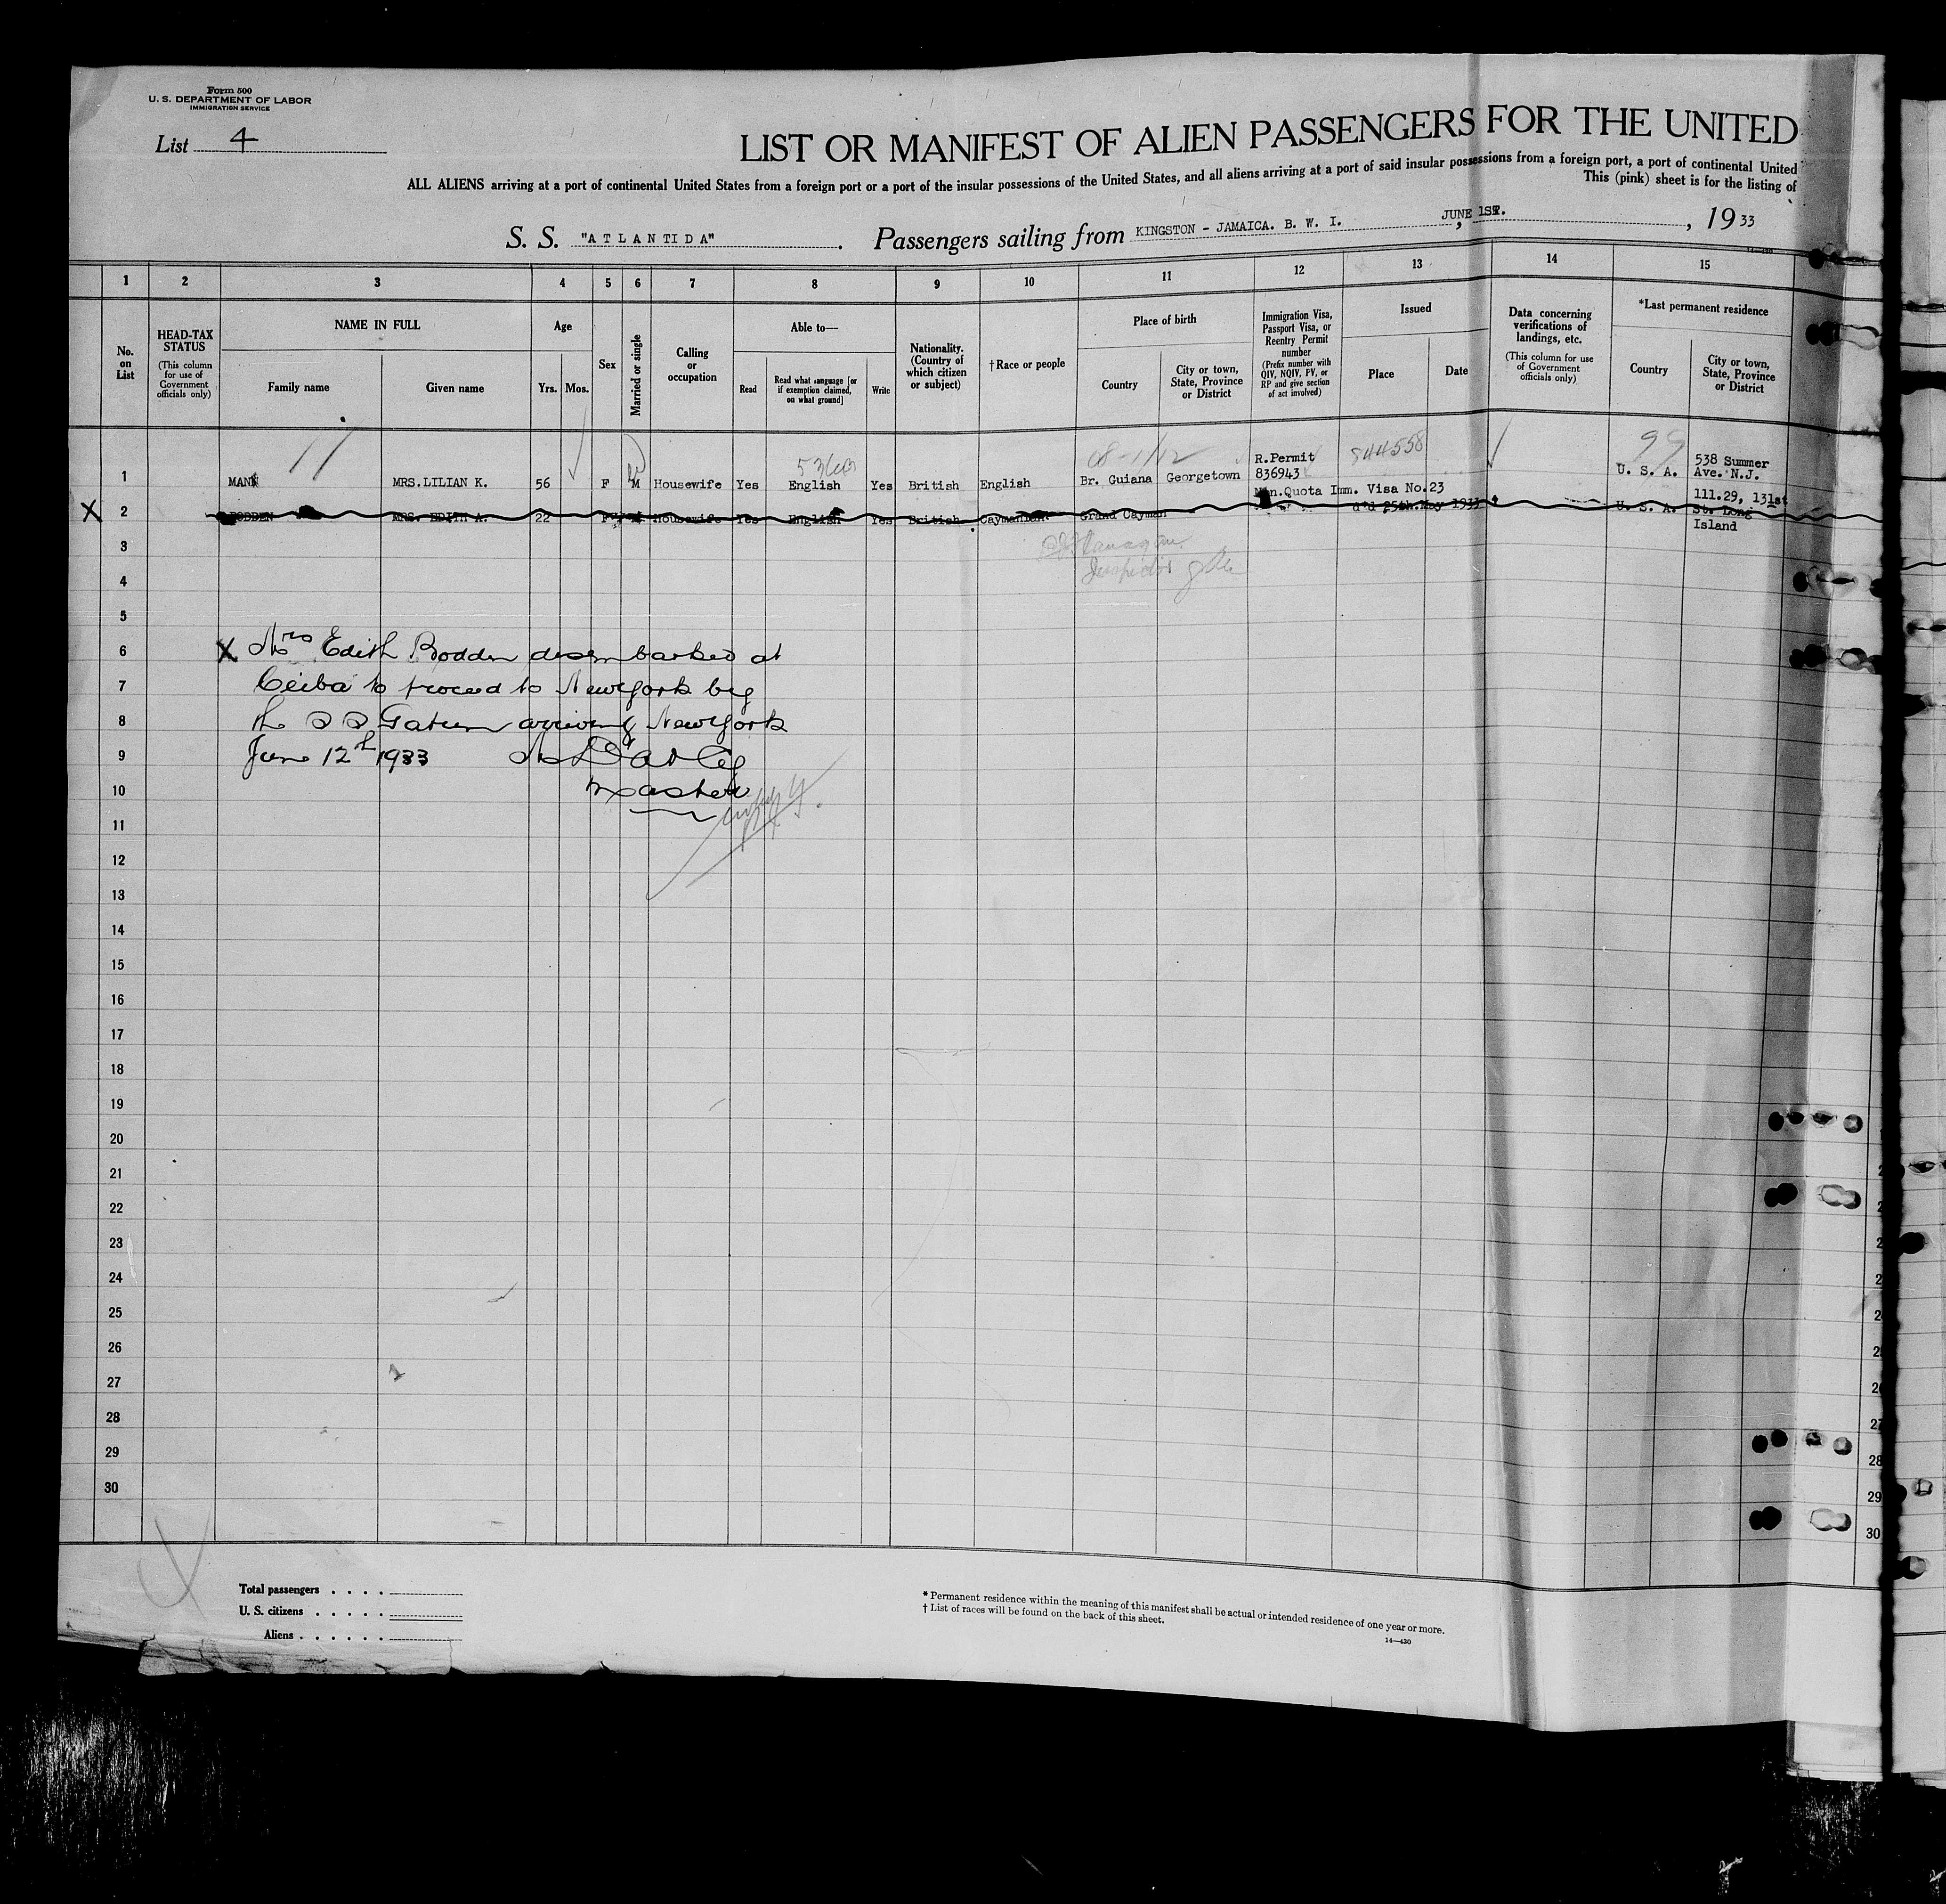 Form 500
U. S. DEPARTMENT OF LABOR
IMMIGRATION SERVICE
List 4
LIST OR MANIFEST OF ALIEN PASSENGERS FOR THE UNITED
ALL ALIENS arriving at a port of continental United States from a foreign port or a port of the insular possessions of the United States, and all aliens arriving at a port of said insular possessions from a foreign port, a port of continental United
This (pink) sheet is for the listing of
S. S. "ATLANTIDA". Passengers sailing from KINGSTON - JAMAICA. B. W. I. , JUNE 1ST. , 1933
1 2 3 4 5 6 7 8 9 10 11 12 13 14 15
No. on List
HEAD-TAX STATUS (This column for use of Government officials only)
NAME IN FULL
Family name Given name
Age
Yrs. Mos.
Sex
Married or single
Calling or occupation
Able to—
Read Read what language [or if exemption claimed, on what ground] Write
Nationality. (Country of which citizen or subject)
†Race or people
Place of birth
Country City or town, State, Province or District
Immigration Visa, Passport Visa, or Reentry Permit number (Prefix number with QIV, NQIV, PV, or RP and give section of act involved)
Issued
Place Date
Data concerning verifications of landings, etc. (This column for use of Government officials only)
*Last permanent residence
Country City or town, State, Province or District
11 08-1/12 844558 99
1 MANN MRS.LILIAN K. 56 F M Housewife Yes English Yes British English Br. Guiana Georgetown R.Permit 836943 U. S. A. 538 Summer Ave. N.J.
X 2 BODDEN MRS. EDITH A. 22 F M Housewife Yes English Yes British Caymanian Grand Cayman Non.Quota Imm. Visa No.23 d'd 25th.May 1933 U. S. A. 111.29, 131st St. Long Island
3
Inspector
4
5
6 X Mrs Edith Bodden disembarked at
7 Ceiba to proceed to New York by
8 the SS Gatun arriving New York
9 June 12th 1933
10 Master
11
12
13
14
15
16
17
18
19
20
21
22
23
24
25
26
27
28
29
30
Total passengers . . . .
U. S. citizens . . . . .
Aliens . . . . . .
* Permanent residence within the meaning of this manifest shall be actual or intended residence of one year or more.
† List of races will be found on the back of this sheet.
14—430
27
28
29
30